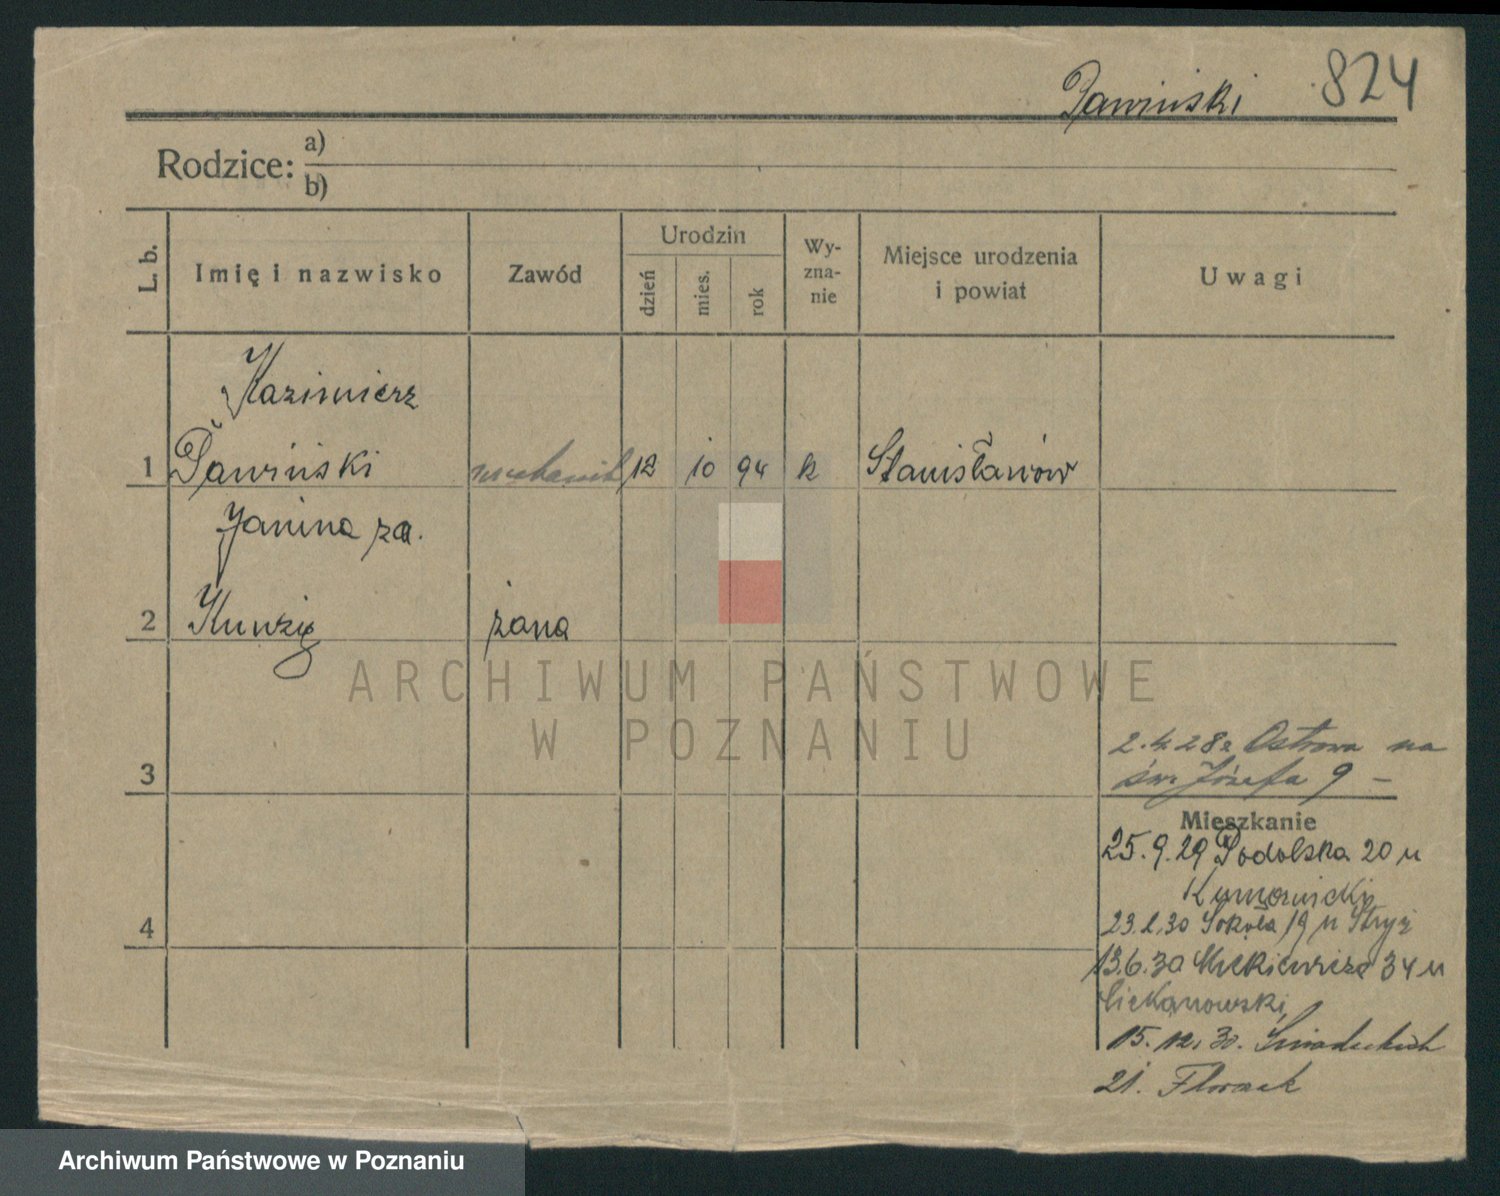 Pawiński 824
Rodzice: a)
b)
L. b. Imię i nazwisko Zawód Urodzin dzień mies. rok Wy-zna-nie Miejsce urodzenia i powiat Uwagi
Kazimierz
1 Pawiński mechanik 12 10 94 k Stanisławów
Janina za.
2 żona
ARCHIWUM PAŃSTWOWE
W POZNANIU
2.4.28 z Ostrowa na
3 św. Józefa 9 –
Mieszkanie
25.9.29 Podolska 20 u
4 23.2.30 Sokoła 19 u Stryj
13.6.30 Mickiewicza 34 u
Ciekanowski
15.12.30. Śniadeckich
21. Florczak
Archiwum Państwowe w Poznaniu